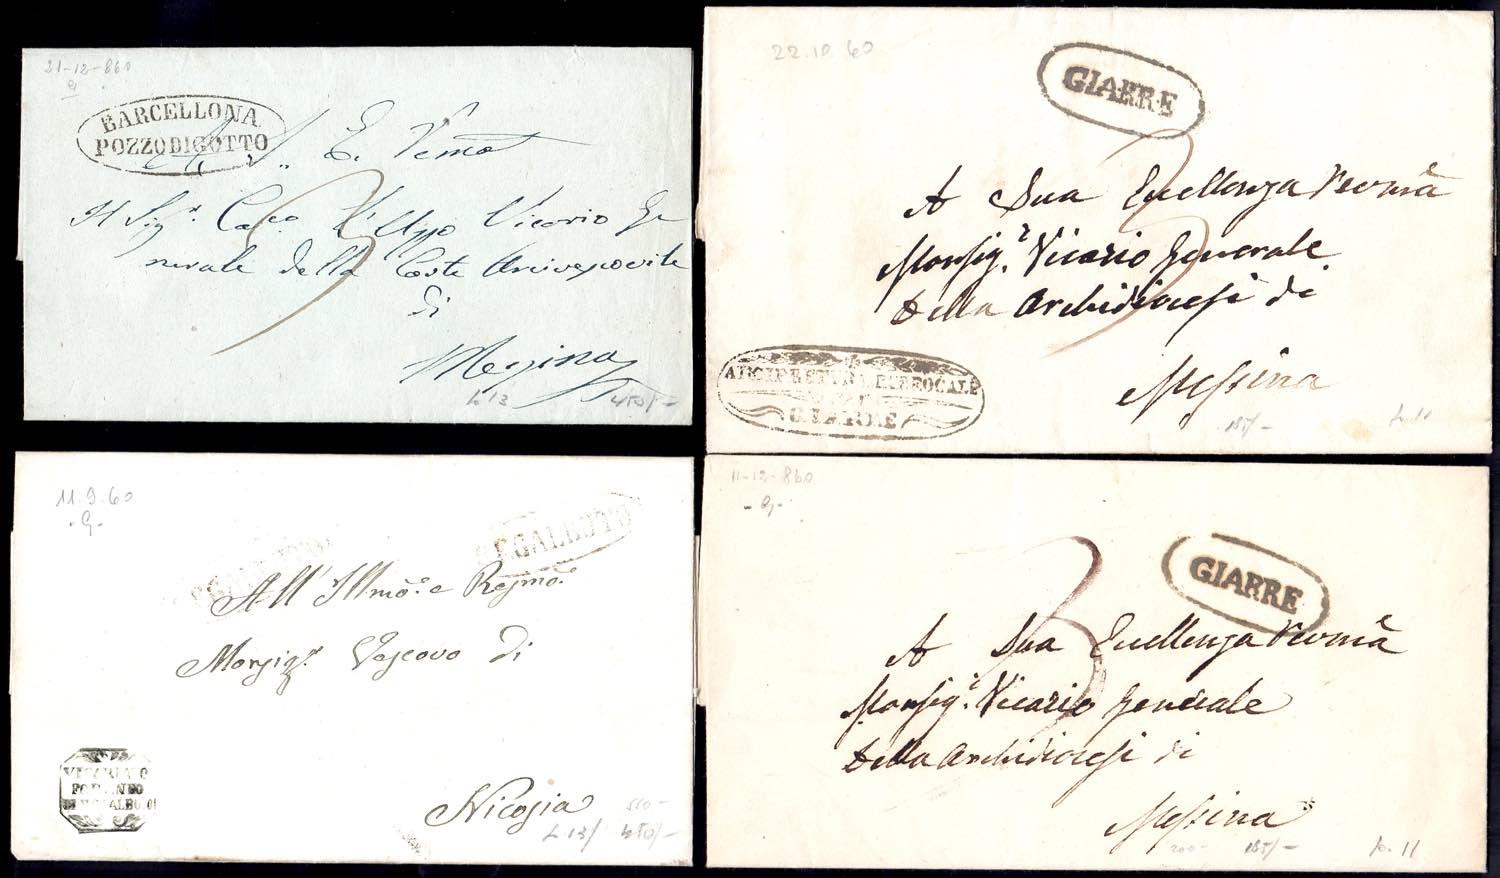 21-12-860
BARCELLONA
POZZODIGOTTO
A S. E. Rema
Il Sigr. Vicario Ge
nerale della Corte Arcivescovile
di
Messina
L 13 450/-
22.10 60
GIARRE
3
A Sua Eccellenza Revmã
Monsigr. Vicario Generale
Della Archidiocesi di
Messina
ARCIPRETURA PARROCALE
DI
GIARRE
185/- L. 11
11.9.60
- G -
REGALBUTO
REGALBUTO
All' Illmo. e Revmo.
Monsigr. Vescovo di
Nicosia
VICARIATO
FORANEO
DI REGALBUTO
550-
L 13/ 450/-
11-12-860
- G -
GIARRE
3
A Sua Eccellenza Revmã
Monsigr. Vicario Generale
Della Archidiocesi di
Messina
200- 185/- L. 11